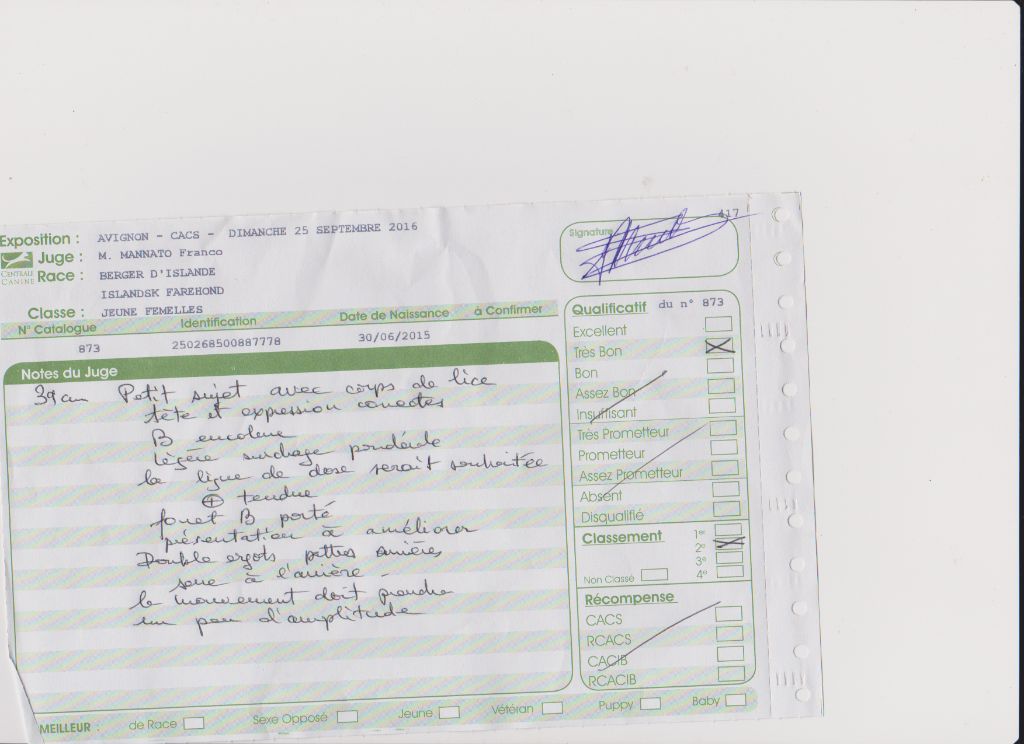 417
Exposition : AVIGNON - CACS - DIMANCHE 25 SEPTEMBRE 2016
Signature
CENTRALE CANINE
Juge : M. MANNATO Franco
Race : BERGER D'ISLANDE
ISLANDSK FAREHOND
Classe : JEUNE FEMELLES
N° Catalogue Identification Date de Naissance à Confirmer
873 250268500887778 30/06/2015
Notes du Juge
39 cm Petit sujet avec corps de lice
tête et expression correctes
B encolure
légère surchage pondérale
la ligne de dose serait souhaitée
+ tendue
fouet B porté
présentation à améliorer
Double ergots pattes arrières
serré à l'arrière
le mouvement doit prendre
un peu d'amplitude
Qualificatif du n° 873
Excellent
Très Bon
Bon
Assez Bon
Insuffisant
Très Prometteur
Prometteur
Assez Prometteur
Absent
Disqualifié
Classement 1er
2e
3e
Non Classé 4e
Récompense
CACS
RCACS
CACIB
RCACIB
MEILLEUR : de Race Sexe Opposé Jeune Vétéran Puppy Baby